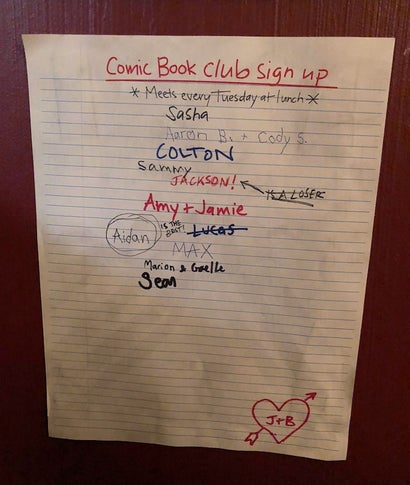 Comic Book Club Sign up
* Meets every Tuesday at lunch *
Sasha
Aaron B. + Cody S.
COLTON
Sammy
JACKSON!
IS A LOSER
Amy + Jamie
Aidan
IS THE BEST!
LUCAS
MAX
Marion & Gaelle
Sean
J+B